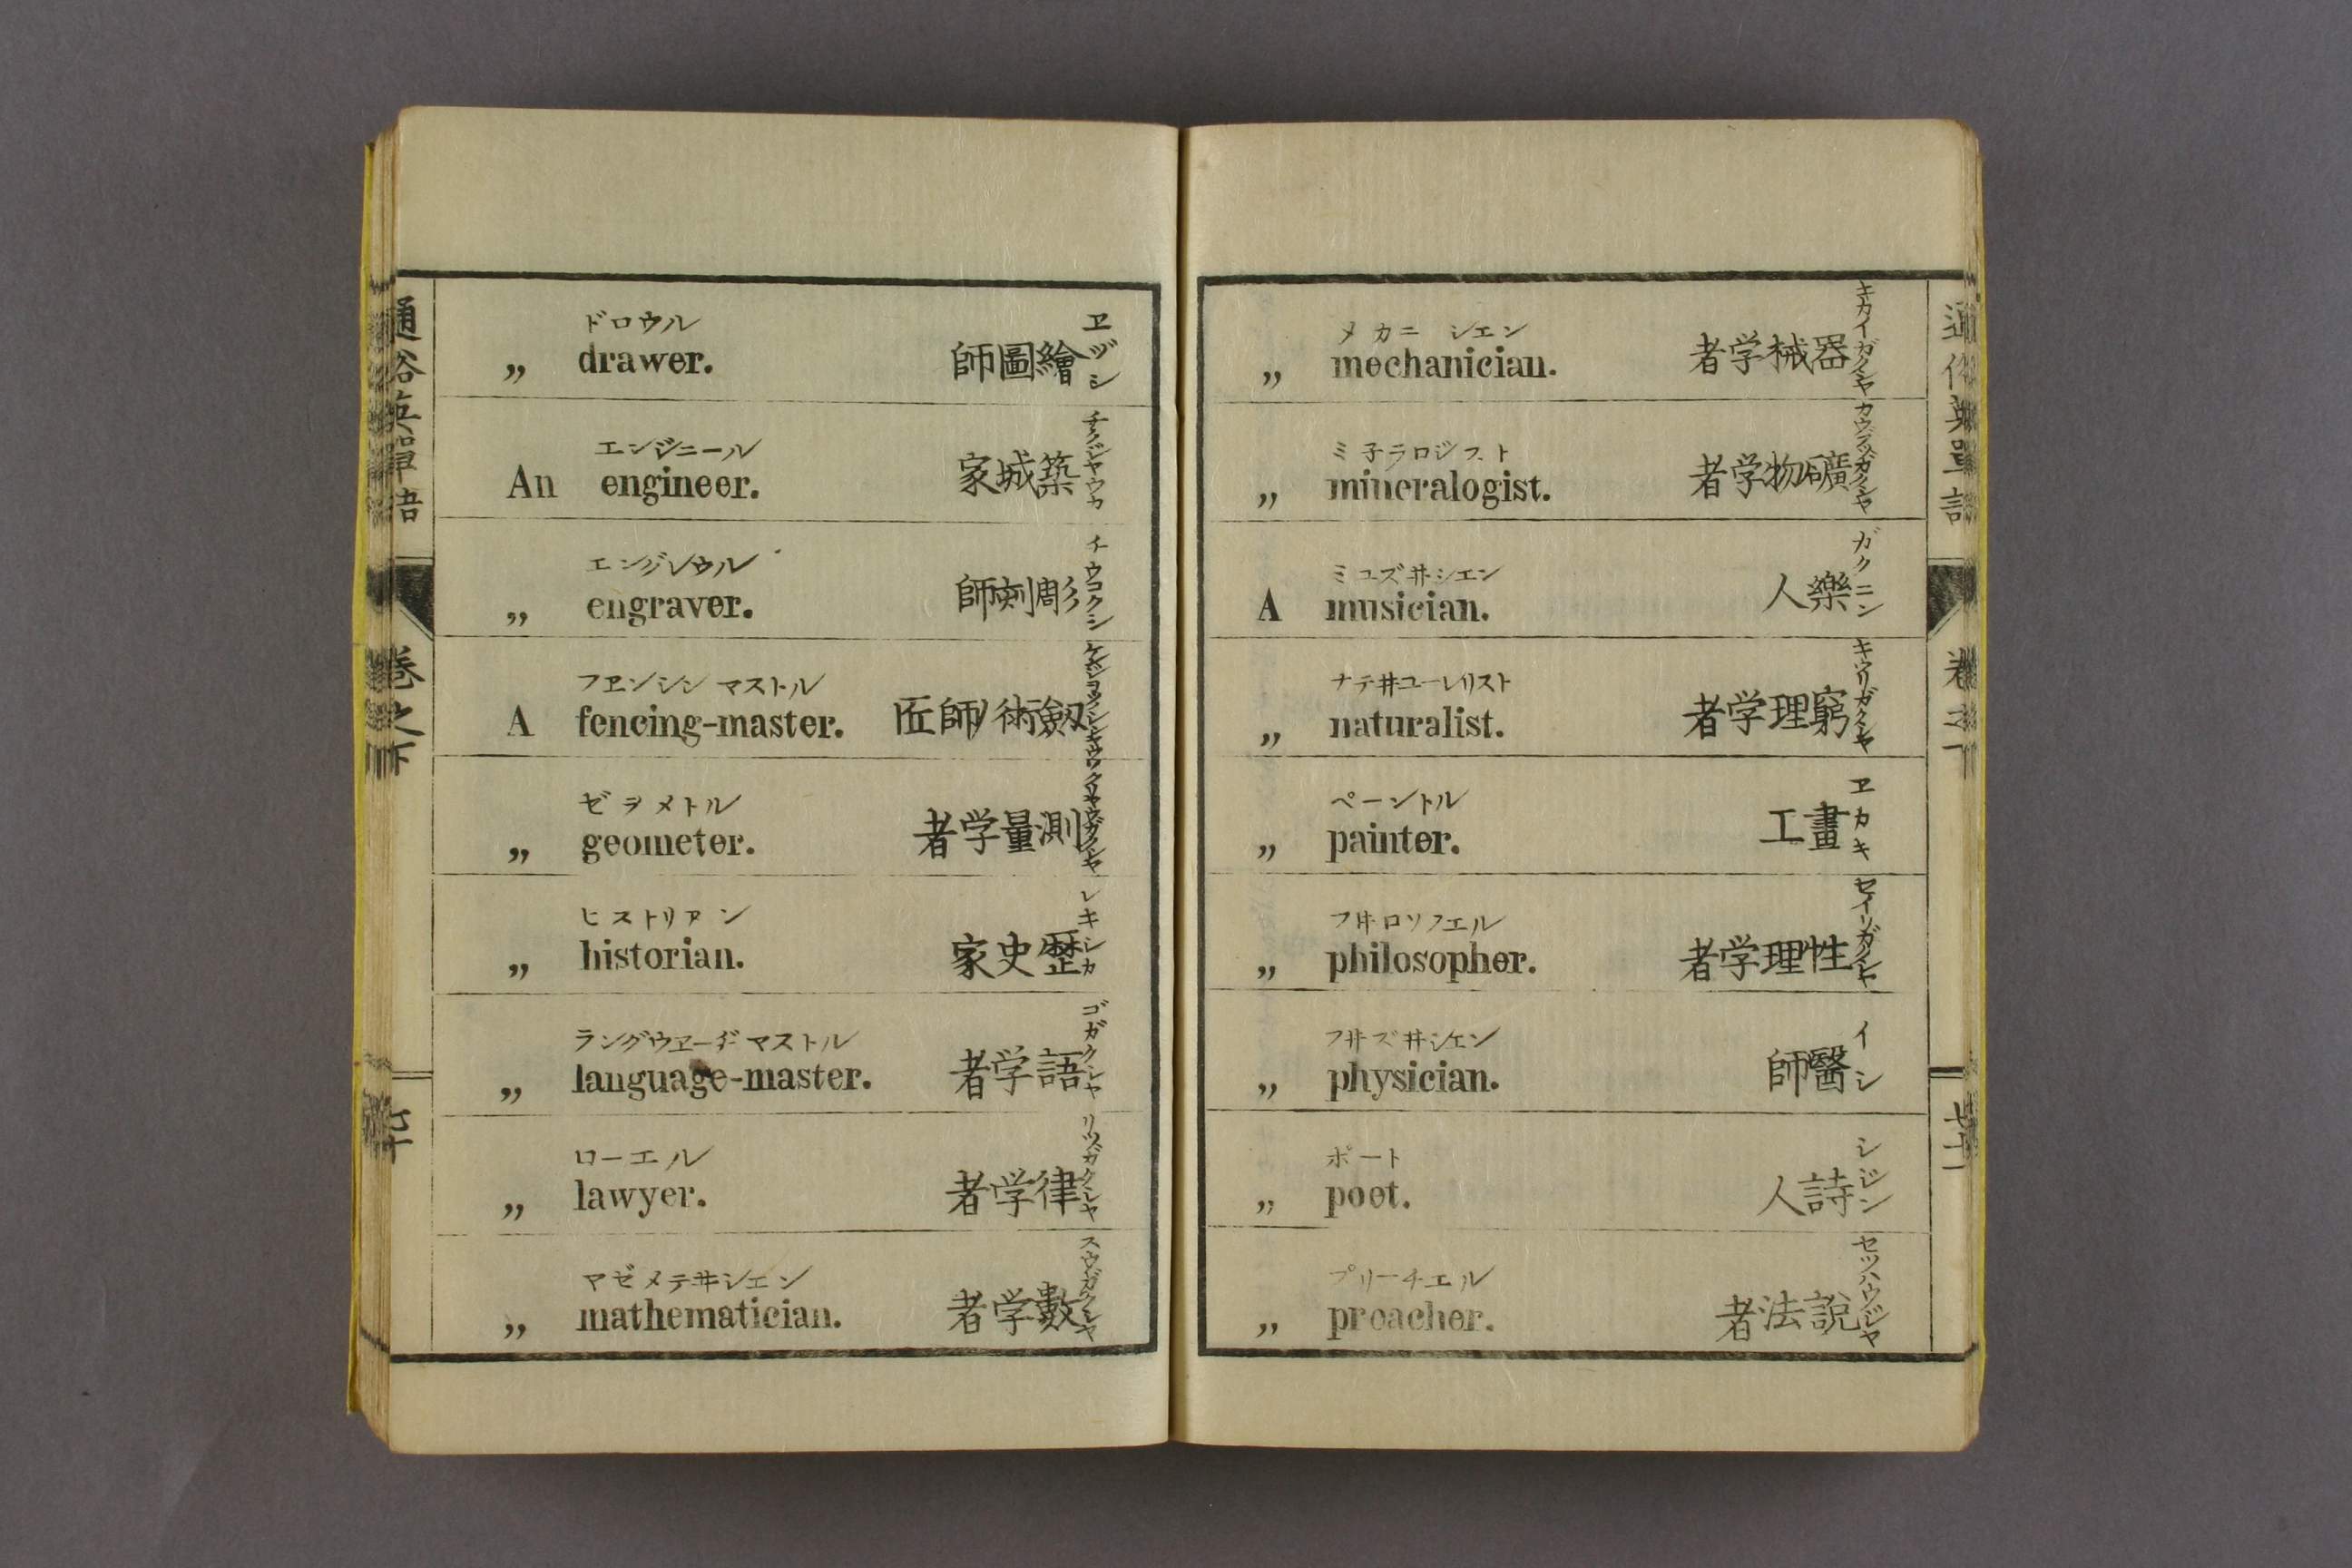 通俗英單語
卷之下
七十
ドロウル
„ drawer. 師圖繪 ヱヅシ
エンジニール
An engineer. 家城築 チクジヤウカ
エングレウル
„ engraver. 師刻彫
フヱンシン マストル
A fencing-master. 匠師術劔
ゼヲメトル
„ geometer. 者学量測
ヒストリアン
„ historian. 家史歴 レキシカ
ラングウヱーヂ マストル
„ language-master. 者学語 ゴガクシヤ
ローエル
„ lawyer. 者学律 リツガクシヤ
マゼメテ井シエン
„ mathematician. 者学數 スウガクシヤ
メカニシエン
„ mechanician. 者学械器 キカイガクシヤ
ミ子ラロジスト
„ mineralogist. 者学物礦 カウブツガクシヤ
ミユズ井シエン
A musician. 人樂 ガクニン
ナテ井ユーレリスト
„ naturalist. 者学理窮 キウリガクシヤ
ペーントル
„ painter. 工畫 ヱカキ
フ井ロソフエル
„ philosopher. 者学理性 セイリガクシヤ
フ井ズ井シエン
„ physician. 師醫 イシ
ポート
„ poet. 人詩 シジン
プリーチエル
„ preacher. 者法說 セツハウジヤ
通俗英單語
卷之下
七十一